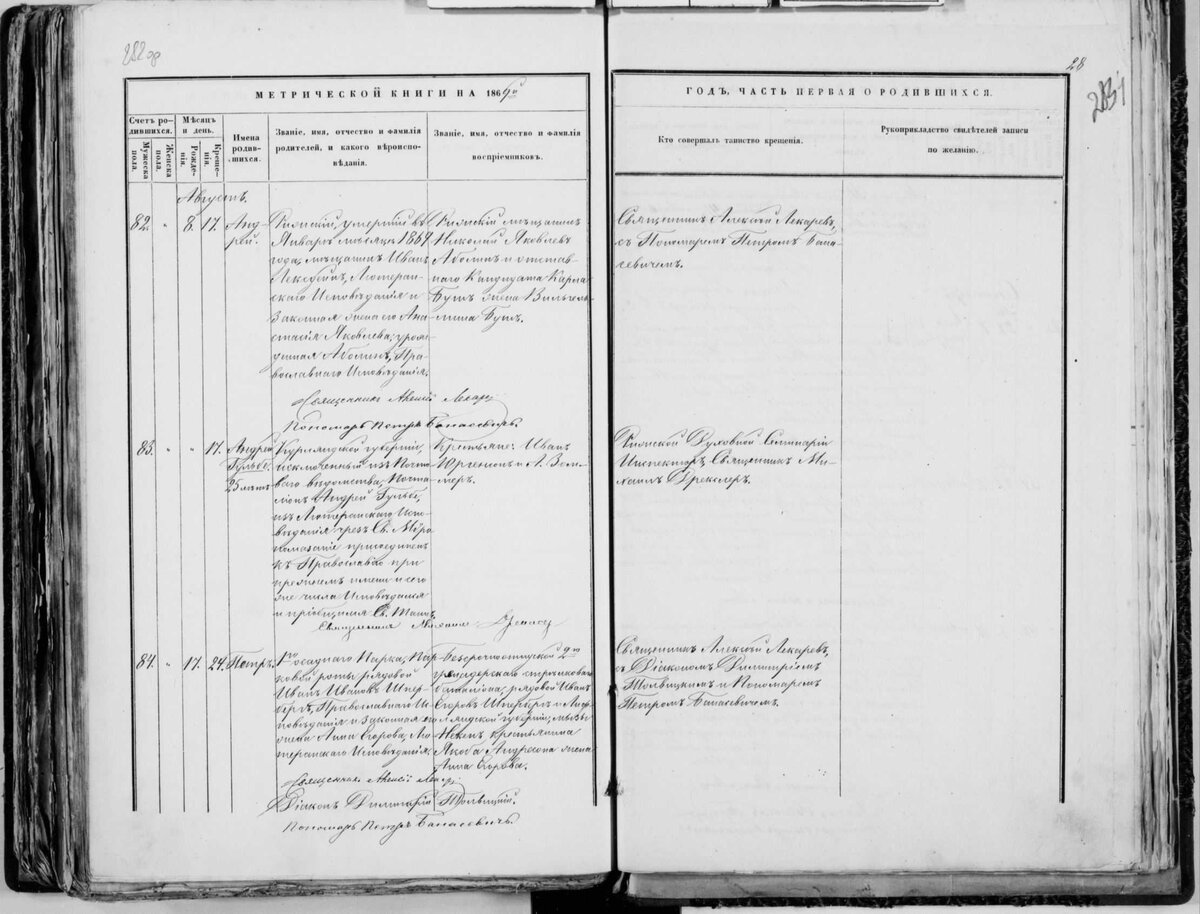 282 об
28
2831
МЕТРИЧЕСКОЙ КНИГИ НА 1869й
Счетъ ро-
дившихся.
Мужеска
пола.
Женска
пола.
Мѣсяцъ
и день.
Рожде-
нія.
Креще-
нія.
Имена
родив-
шихся.
Званіе, имя, отчество и фамилія
родителей, и какого вѣроиспо-
вѣданія.
Званіе, имя, отчество и фамилія
воспріемниковъ.
ГОДЪ, ЧАСТЬ ПЕРВАЯ О РОДИВШИХСЯ.
Кто совершалъ таинство крещенія.
Рукоприкладство свидѣтелей записи
по желанію.
Августъ.
82. " 8. 17. Анд-
рей.
Рижскій, умершій въ
Январѣ мѣсяцѣ 1869
года, мѣщанинъ Иванъ
Лютеран-
скаго Исповѣданія и
Законная жена его Ана-
стасія Яковлева, урож-
денная Аболинъ, Пра-
вославнаго Исповѣданія.
Рижскій мѣщанинъ
Николай Яковлевъ
Аболинъ и отстав-
наго Кандидата Карла
Бутъ жена Вильгель-
мина Бутъ.
Священникъ Алексѣй Лекаревъ,
съ Пономаремъ Петромъ Бана-
севичемъ.
Священникъ Алексій Лекар
Пономарь Петръ Банасевичъ.
83. " " 17. Андрей
Гульбе.
25 лѣтъ
Курляндской губерніи,
исключенный изъ Почто-
ваго вѣдомства, Почта-
ліонъ Андрей Гульбе,
изъ Лютеранскаго Испо-
вѣданія чрезъ Св. Мѵро-
помазаніе присоединенъ
къ Православію при
прежнемъ имени и сего
же числа Исповѣдался
и пріобщился Св. Таинъ.
Крестьяне: Иванъ
Юргенсонъ и А. Зем-
меръ.
Рижской Духовной Семинаріи
Инспекторъ, Священникъ Ми-
хаилъ Дрекслеръ.
Священникъ Михаилъ Дрекслеръ
84. " 17. 24. Петръ.
1го осаднаго Парка, Пар-
ковой роты, рядовой
Иванъ Ивановъ Шпер-
бергъ, Православнаго Ис-
повѣданія и Законная его
жена Анна Егорова, Лю-
теранскаго Исповѣданія.
2го
гренадерскаго стрѣлковаго
баталіона, рядовой Иванъ
Егоровъ Шпербергъ и Лиф-
ляндской губерніи, мызы
крестьянина
Якоба Андресона жена
Анна Егорова.
Священникъ Алексѣй Лекаревъ,
съ Діакономъ Димитріемъ
Толвицкимъ и Пономаремъ
Петромъ Банасевичемъ.
Священникъ Алексій Лекар
Діаконъ Димитрій Толвицкій.
Пономарь Петръ Банасевичъ.